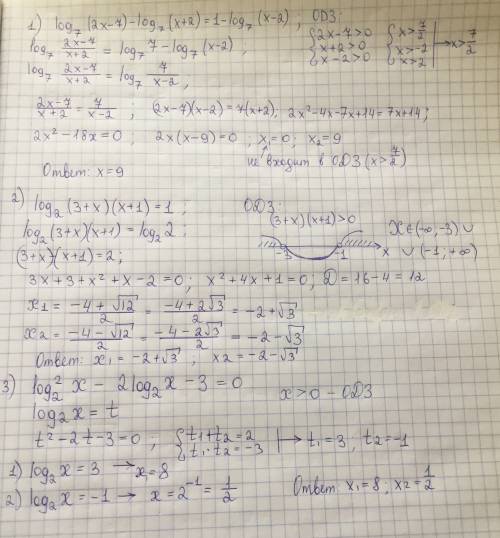 1) log₇(2x-7)-log₇(x+2)=1-log₇(x-2); ОДЗ:
log₇ (2x-7)/(x+2) = log₇7-log₇(x-2), {2x-7>0 x+2>0 x-2>0 {x>7/2 x>-2 x>2 |→x>7/2
log₇ (2x-7)/(x+2) = log₇ 7/(x-2),
(2x-7)/(x+2) = 7/(x-2); (2x-7)(x-2)=7(x+2); 2x²-4x-7x+14=7x+14;
2x²-18x=0; 2x(x-9)=0; x₁=0; x₂=9
Ответ: x=9 не входит в ОДЗ (x>7/2)
2) log₂(3+x)(x+1)=1; ОДЗ:
log₂(3+x)(x+1)=log₂2; (3+x)(x+1)>0
(3+x)(x+1)=2; -3 -1 x X∈(-∞,-3)∪ ∪(-1;+∞)
3x+3+x²+x-2=0; x²+4x+1=0; D=16-4=12
x1 = (-4+√12)/2 = (-4+2√3)/2 = -2+√3
x2 = (-4-√12)/2 = (-4-2√3)/2 = -2-√3
Ответ: x₁=-2+√3; x2=-2-√3
3) log₂²x-2log₂x-3=0 x>0 - ОДЗ
log₂x=t
t²-2t-3=0; {t₁+t₂=2 t₁·t₂=-3 |→ t₁=3; t₂=-1
1) log₂x=3 → x₁=8
2) log₂x=-1 → x=2⁻¹=1/2 Ответ: x₁=8; x2=1/2